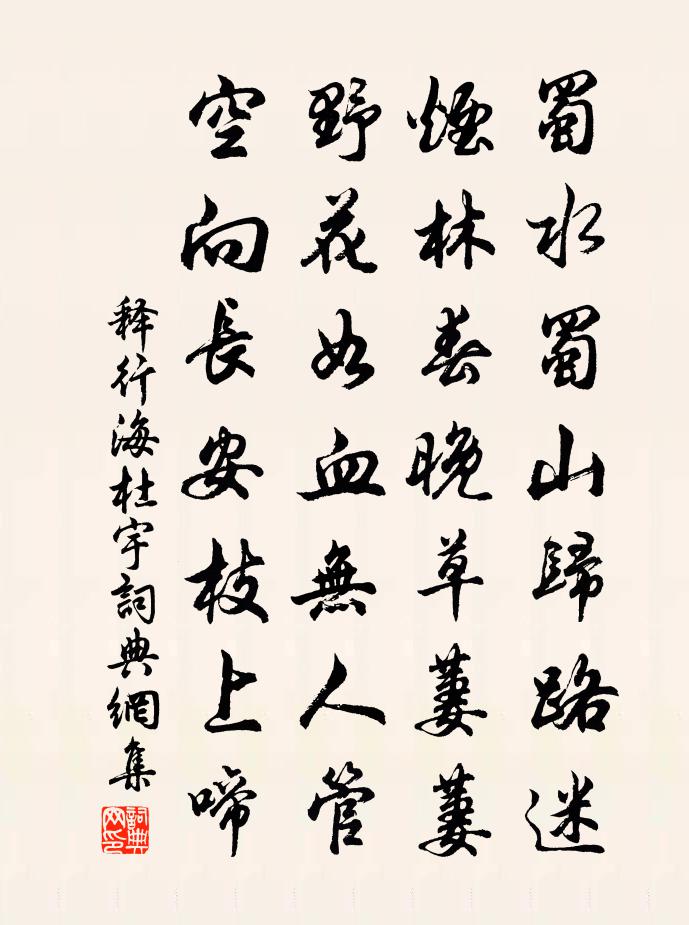 蜀水蜀山歸路迷
煙林春晚草萋萋
野花如血無人管
空向長安枝上啼
释行海杜宇詞典網集
詞典
网印